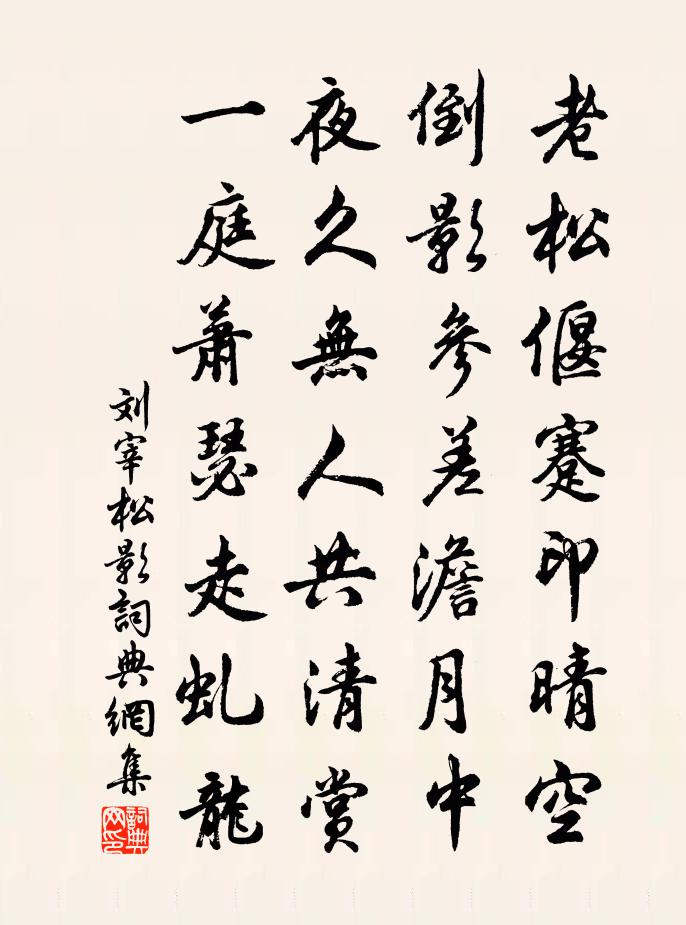 老松偃蹇印晴空
倒影參差澹月中
夜久無人共清賞
一庭蕭瑟走虬龍
刘宰松影詞典網集
詞典
网印